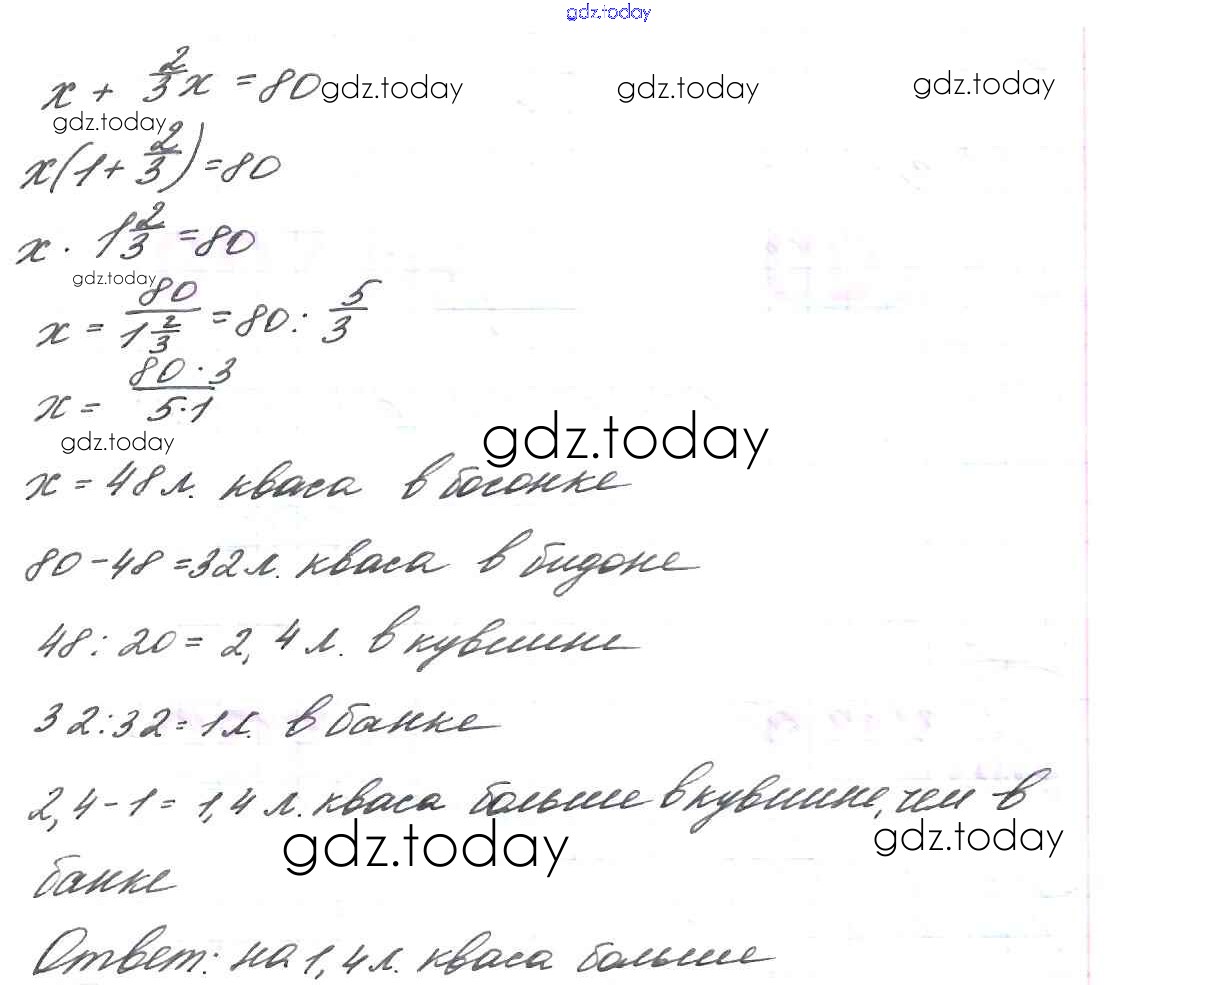 gdz.today
x + 2/3 x = 80 gdz.today gdz.today gdz.today
gdz.today
x(1 + 2/3) = 80
x · 1 2/3 = 80
gdz.today
x = 80/(1 2/3) = 80 : 5/3
x = (80 · 3)/(5 · 1)
gdz.today
gdz.today
x = 48 л. кваса в бочонке
80 - 48 = 32 л. кваса в бидоне
48 : 20 = 2,4 л. в кувшине
32 : 32 = 1 л. в банке
2,4 - 1 = 1,4 л. кваса больше в кувшине, чем в
gdz.today gdz.today
банке
Ответ: на 1,4 л. кваса больше